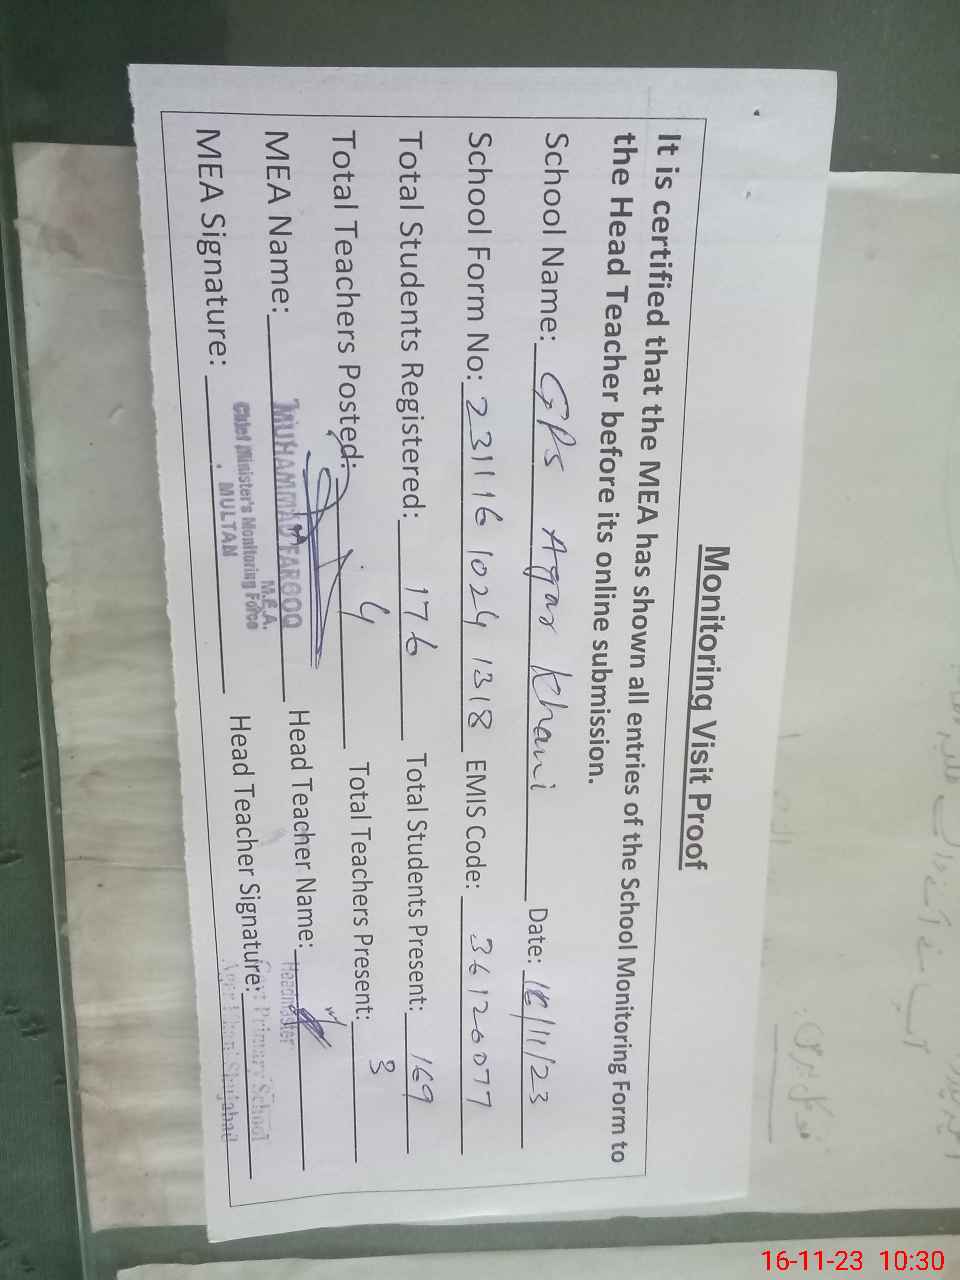 Monitoring Visit Proof
It is certified that the MEA has shown all entries of the School Monitoring Form to
the Head Teacher before its online submission.
School Name: GPS Agar Khani Date: 16/11/23
School Form No: 231116 1024 1318 EMIS Code: 36120077
Total Students Registered: 176 Total Students Present: 169
Total Teachers Posted: 4 Total Teachers Present: 3
MEA Name: MUHAMMAD FAROOQ Head Teacher Name: Headmaster
M.E.A.
Chief Minister's Monitoring Force
MULTAN
MEA Signature: Head Teacher Signature: Govt Primary School
Agar Khani Shujabad
16-11-23 10:30